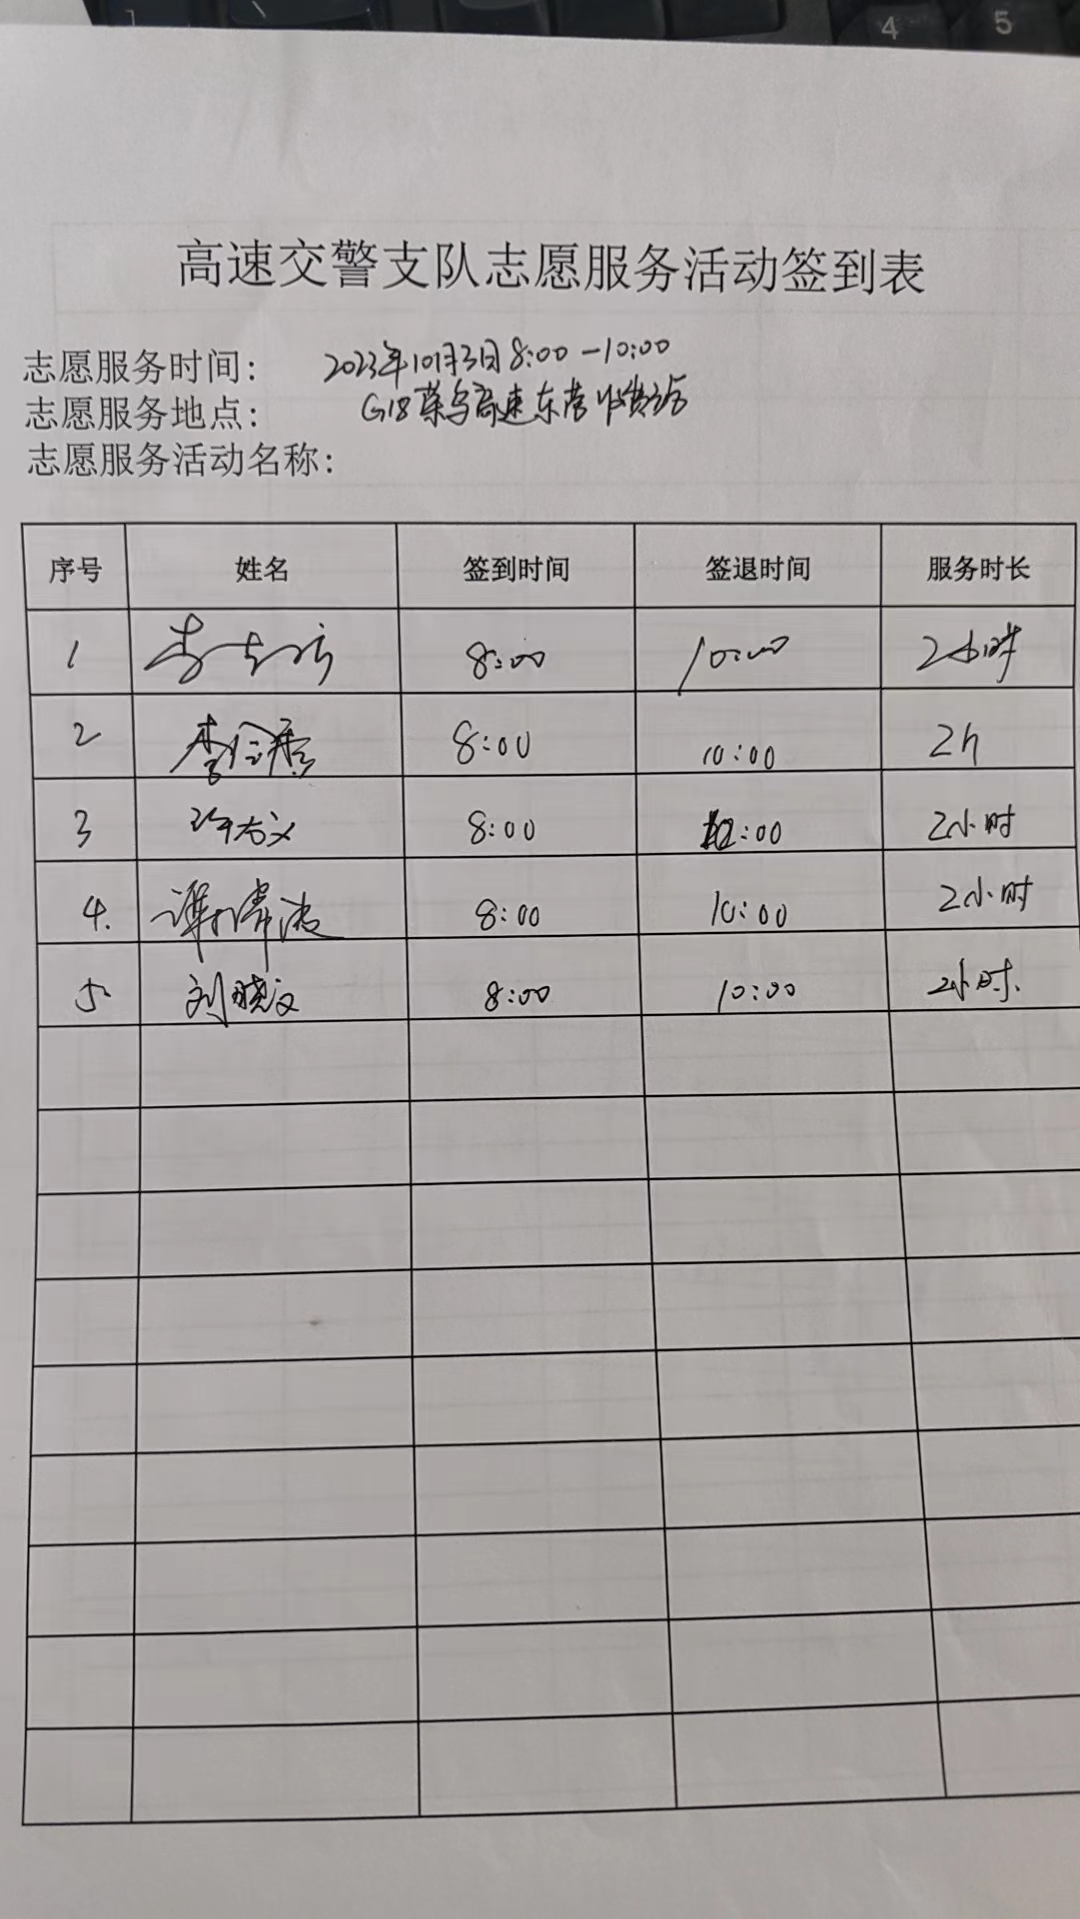 高速交警支队志愿服务活动签到表
志愿服务时间： 2023年10月3日8:00-10:00
志愿服务地点： G18荣乌高速东营收费站
志愿服务活动名称：
序号 姓名 签到时间 签退时间 服务时长
1 李 8:00 10:00 2小时
2 李 8:00 10:00 2h
3 8:00 10:00 2小时
4. 谭 8:00 10:00 2小时
5 刘晓文 8:00 10:00 2小时
4
5